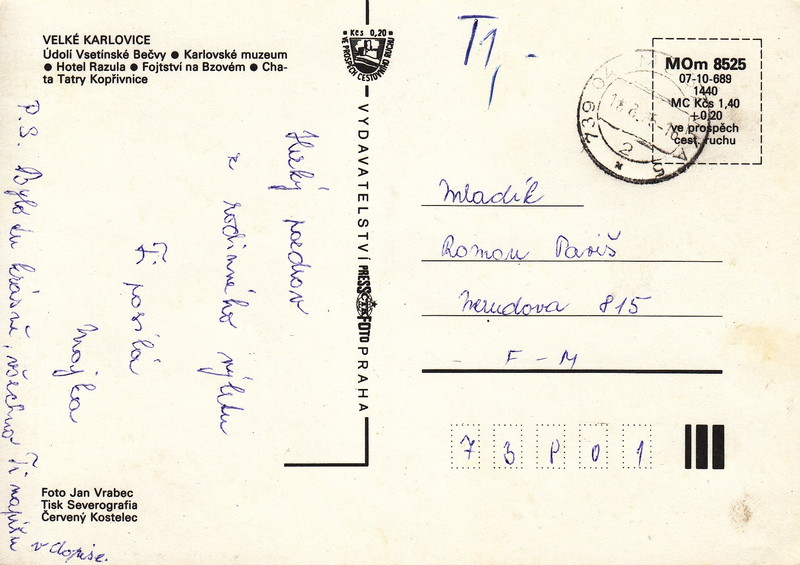 VELKÉ KARLOVICE
Údolí Vsetínské Bečvy ● Karlovské muzeum
● Hotel Razula ● Fojtství na Bzovém ● Cha-
ta Tatry Kopřivnice
Kčs 0,20
VE PROSPĚCH CESTOVNÍHO RUCHU
T1,-
MOm 8525
07-10-689
1440
MC Kčs 1,40
+0,20
ve prospěch
cest. ruchu
739 04
2
VYDAVATELSTVÍ PRESSFOTO PRAHA
Hezký pozdrav
z rodinného výletu
Ti posílá
Majka
P.S. Bylo tu krásně, všechno Ti napíšu
v dopise.
Mladík
Roman Pavis
Nerudova 815
F - M
73801
Foto Jan Vrabec
Tisk Severografia
Červený Kostelec